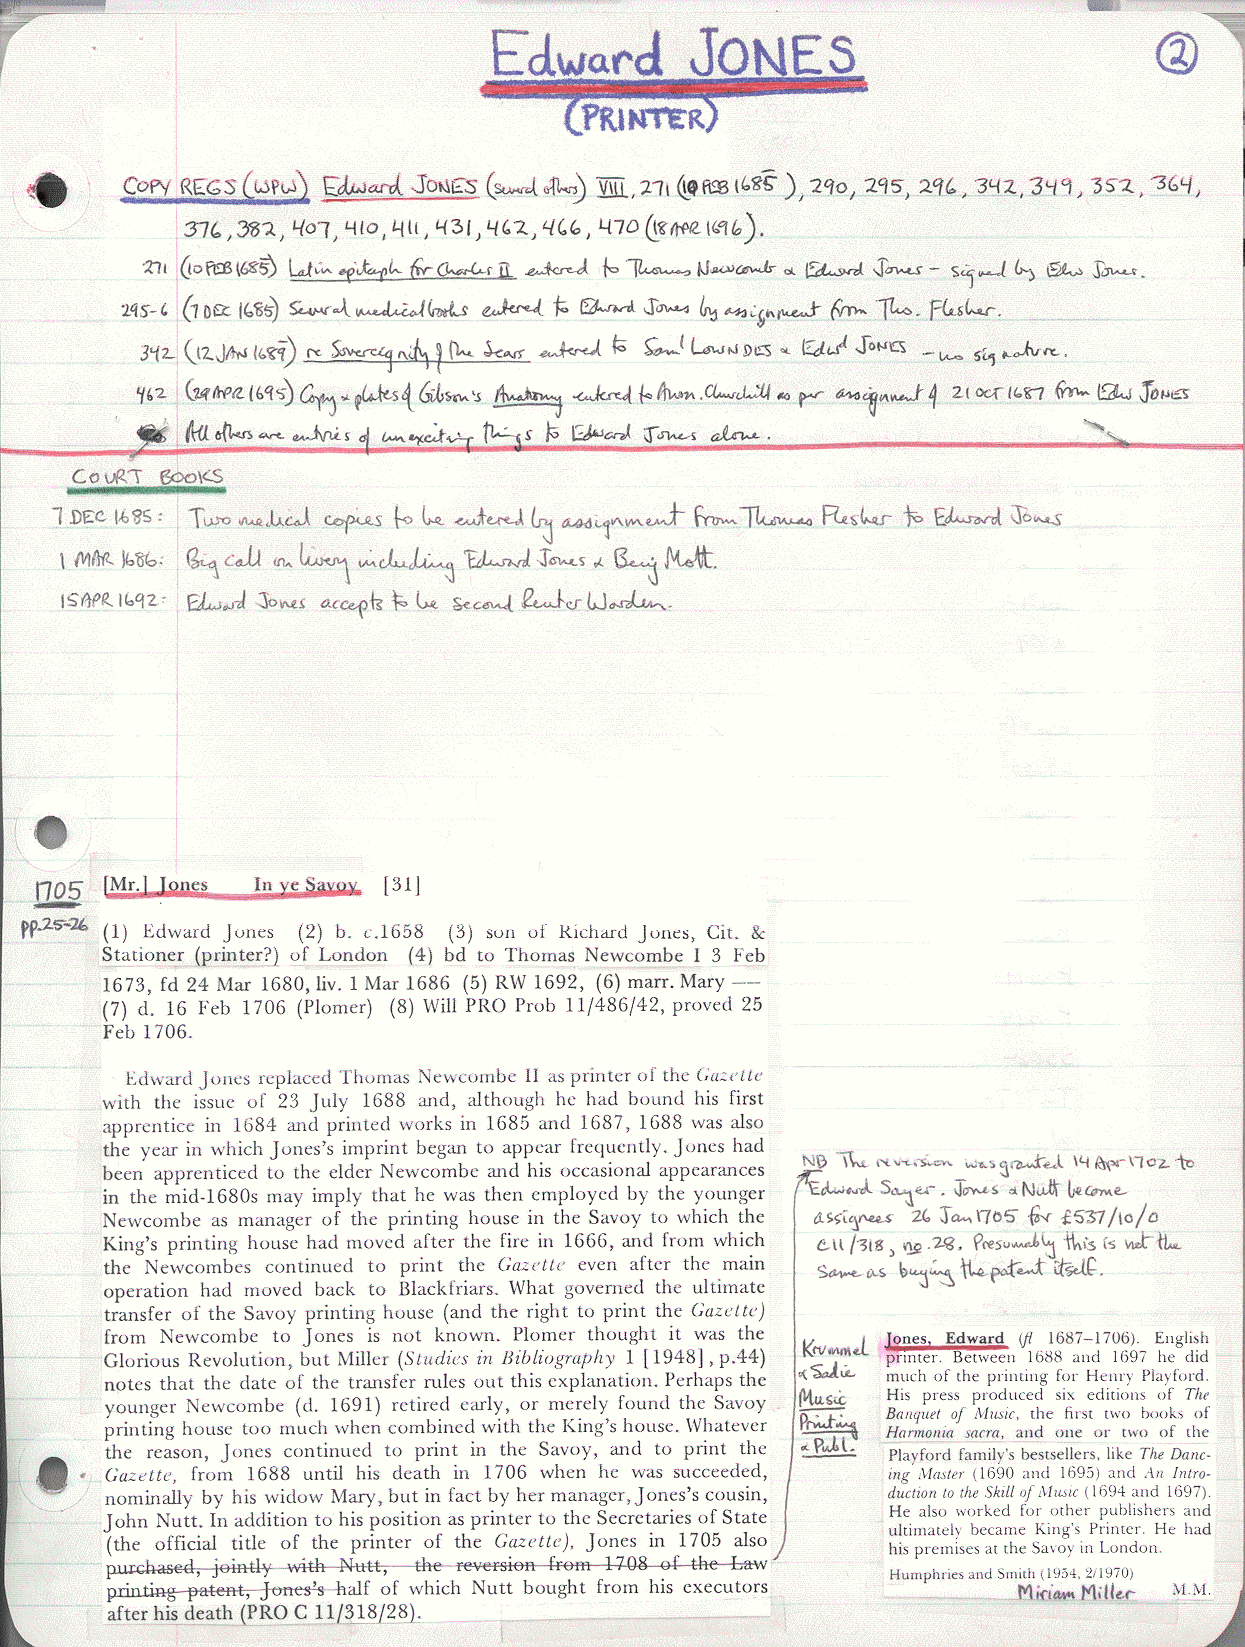 Edward JONES
(PRINTER)
2
COPY REGS (WPW) Edward JONES (several others) VIII, 271 (10 FEB 1685), 290, 295, 296, 342, 349, 352, 364,
376, 382, 407, 410, 411, 431, 462, 466, 470 (18 APR 1696).
271 (10 FEB 1685) Latin epitaph for Charles II entered to Thomas Newcomb & Edward Jones - signed by Edw Jones.
295-6 (7 DEC 1685) Several medical books entered to Edward Jones by assignment from Tho. Flesher.
342 (12 JAN 1689) re Sovereignity of the Seas entered to Saml LOWNDES & Edwd JONES - no signature.
462 (29 APR 1695) Copy & plates of Gibson's Anatomy entered to Awn. Churchill as per assignment of 21 OCT 1687 from Edw JONES
All others are entries of unexciting things to Edward Jones alone.
COURT BOOKS
7 DEC 1685: Two medical copies to be entered by assignment from Thomas Flesher to Edward Jones
1 MAR 1686: Big call on livery including Edward Jones & Benj Mott.
15 APR 1692: Edward Jones accepts to be second Renter Warden.
1705
pp.25-26
[Mr.] Jones In ye Savoy [31]
(1) Edward Jones (2) b. c.1658 (3) son of Richard Jones, Cit. &
Stationer (printer?) of London (4) bd to Thomas Newcombe I 3 Feb
1673, fd 24 Mar 1680, liv. 1 Mar 1686 (5) RW 1692, (6) marr. Mary —
(7) d. 16 Feb 1706 (Plomer) (8) Will PRO Prob 11/486/42, proved 25
Feb 1706.
Edward Jones replaced Thomas Newcombe II as printer of the Gazette
with the issue of 23 July 1688 and, although he had bound his first
apprentice in 1684 and printed works in 1685 and 1687, 1688 was also
the year in which Jones's imprint began to appear frequently. Jones had
been apprenticed to the elder Newcombe and his occasional appearances
in the mid-1680s may imply that he was then employed by the younger
Newcombe as manager of the printing house in the Savoy to which the
King's printing house had moved after the fire in 1666, and from which
the Newcombes continued to print the Gazette even after the main
operation had moved back to Blackfriars. What governed the ultimate
transfer of the Savoy printing house (and the right to print the Gazette)
from Newcombe to Jones is not known. Plomer thought it was the
Glorious Revolution, but Miller (Studies in Bibliography 1 [1948], p.44)
notes that the date of the transfer rules out this explanation. Perhaps the
younger Newcombe (d. 1691) retired early, or merely found the Savoy
printing house too much when combined with the King's house. Whatever
the reason, Jones continued to print in the Savoy, and to print the
Gazette, from 1688 until his death in 1706 when he was succeeded,
nominally by his widow Mary, but in fact by her manager, Jones's cousin,
John Nutt. In addition to his position as printer to the Secretaries of State
(the official title of the printer of the Gazette), Jones in 1705 also
purchased, jointly with Nutt, the reversion from 1708 of the Law
printing patent, Jones's half of which Nutt bought from his executors
after his death (PRO C 11/318/28).
NB The reversion was granted 14 Apr 1702 to
Edward Sayer. Jones & Nutt become
assignees 26 Jan 1705 for £537/10/0
C11/318, no.28. Presumably this is not the
same as buying the patent itself.
Krummel
& Sadie
Music
Printing
& Publ.
Jones, Edward (fl 1687–1706). English
printer. Between 1688 and 1697 he did
much of the printing for Henry Playford.
His press produced six editions of The
Banquet of Music, the first two books of
Harmonia sacra, and one or two of the
Playford family's bestsellers, like The Danc-
ing Master (1690 and 1695) and An Intro-
duction to the Skill of Music (1694 and 1697).
He also worked for other publishers and
ultimately became King's Printer. He had
his premises at the Savoy in London.
Humphries and Smith (1954, 2/1970)
Miriam Miller M.M.